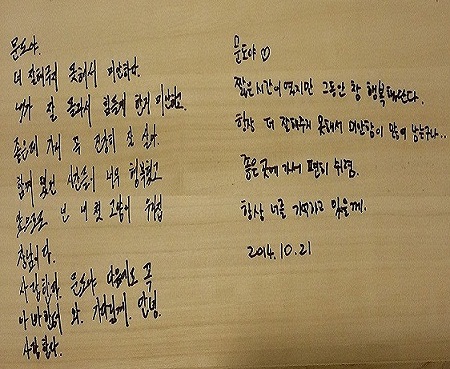 문도야.
더 잘해주지 못해서 미안하다.
내가 잘 몰라서 힘들게 한거 미안하고
좋은데 가서 꼭 건강히 잘
함께 했던 시간들이 너무 행복했고
앞으로도 넌 내 첫 고양이 우리집
장남이다.
사랑한다. 문도야 다음에도 꼭
아빠한테 와. 기다릴게. 안녕
사랑한다.
문도야♡
짧은 시간이였지만 그동안 참 행복했단다.
항상 더 잘해주지 못해서 미안함이 많이 남는구나..
좋은 곳에 가서 편히 쉬렴
항상 너를 기억하고 있을게.
2014.10.21